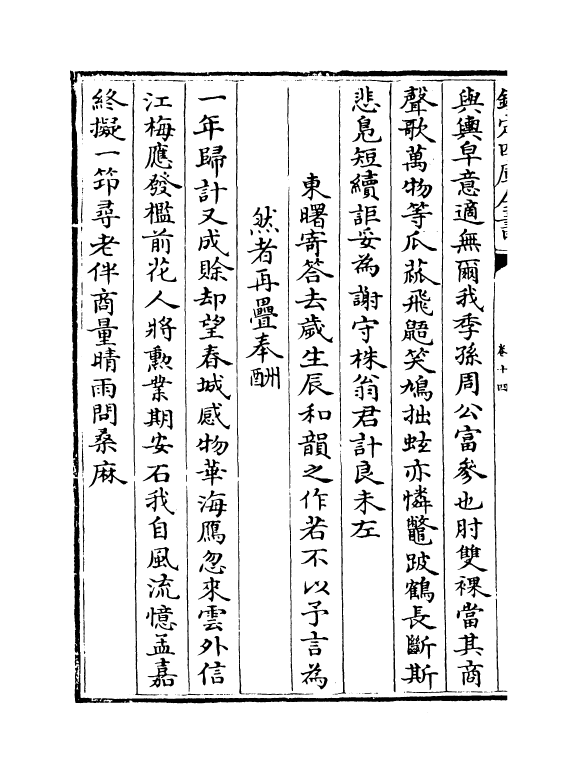 欽定四庫全書
卷十四
與輿皁意適無爾我季孫周公富參也肘雙裸當其商
聲歌萬物等瓜蓏飛鼯笑鳩拙蚿亦憐鼈跛鶴長斷斯
悲鳧短續詎妥為謝守株翁君計良未左
東曙寄答去歲生辰和韻之作若不以予言為
然者再疊奉酬
一年歸計又成賖却望春城感物華海鴈忽來雲外信
江梅應發檻前花人將勲業期安石我自風流憶孟嘉
終擬一笻尋老伴商量晴雨問桑麻